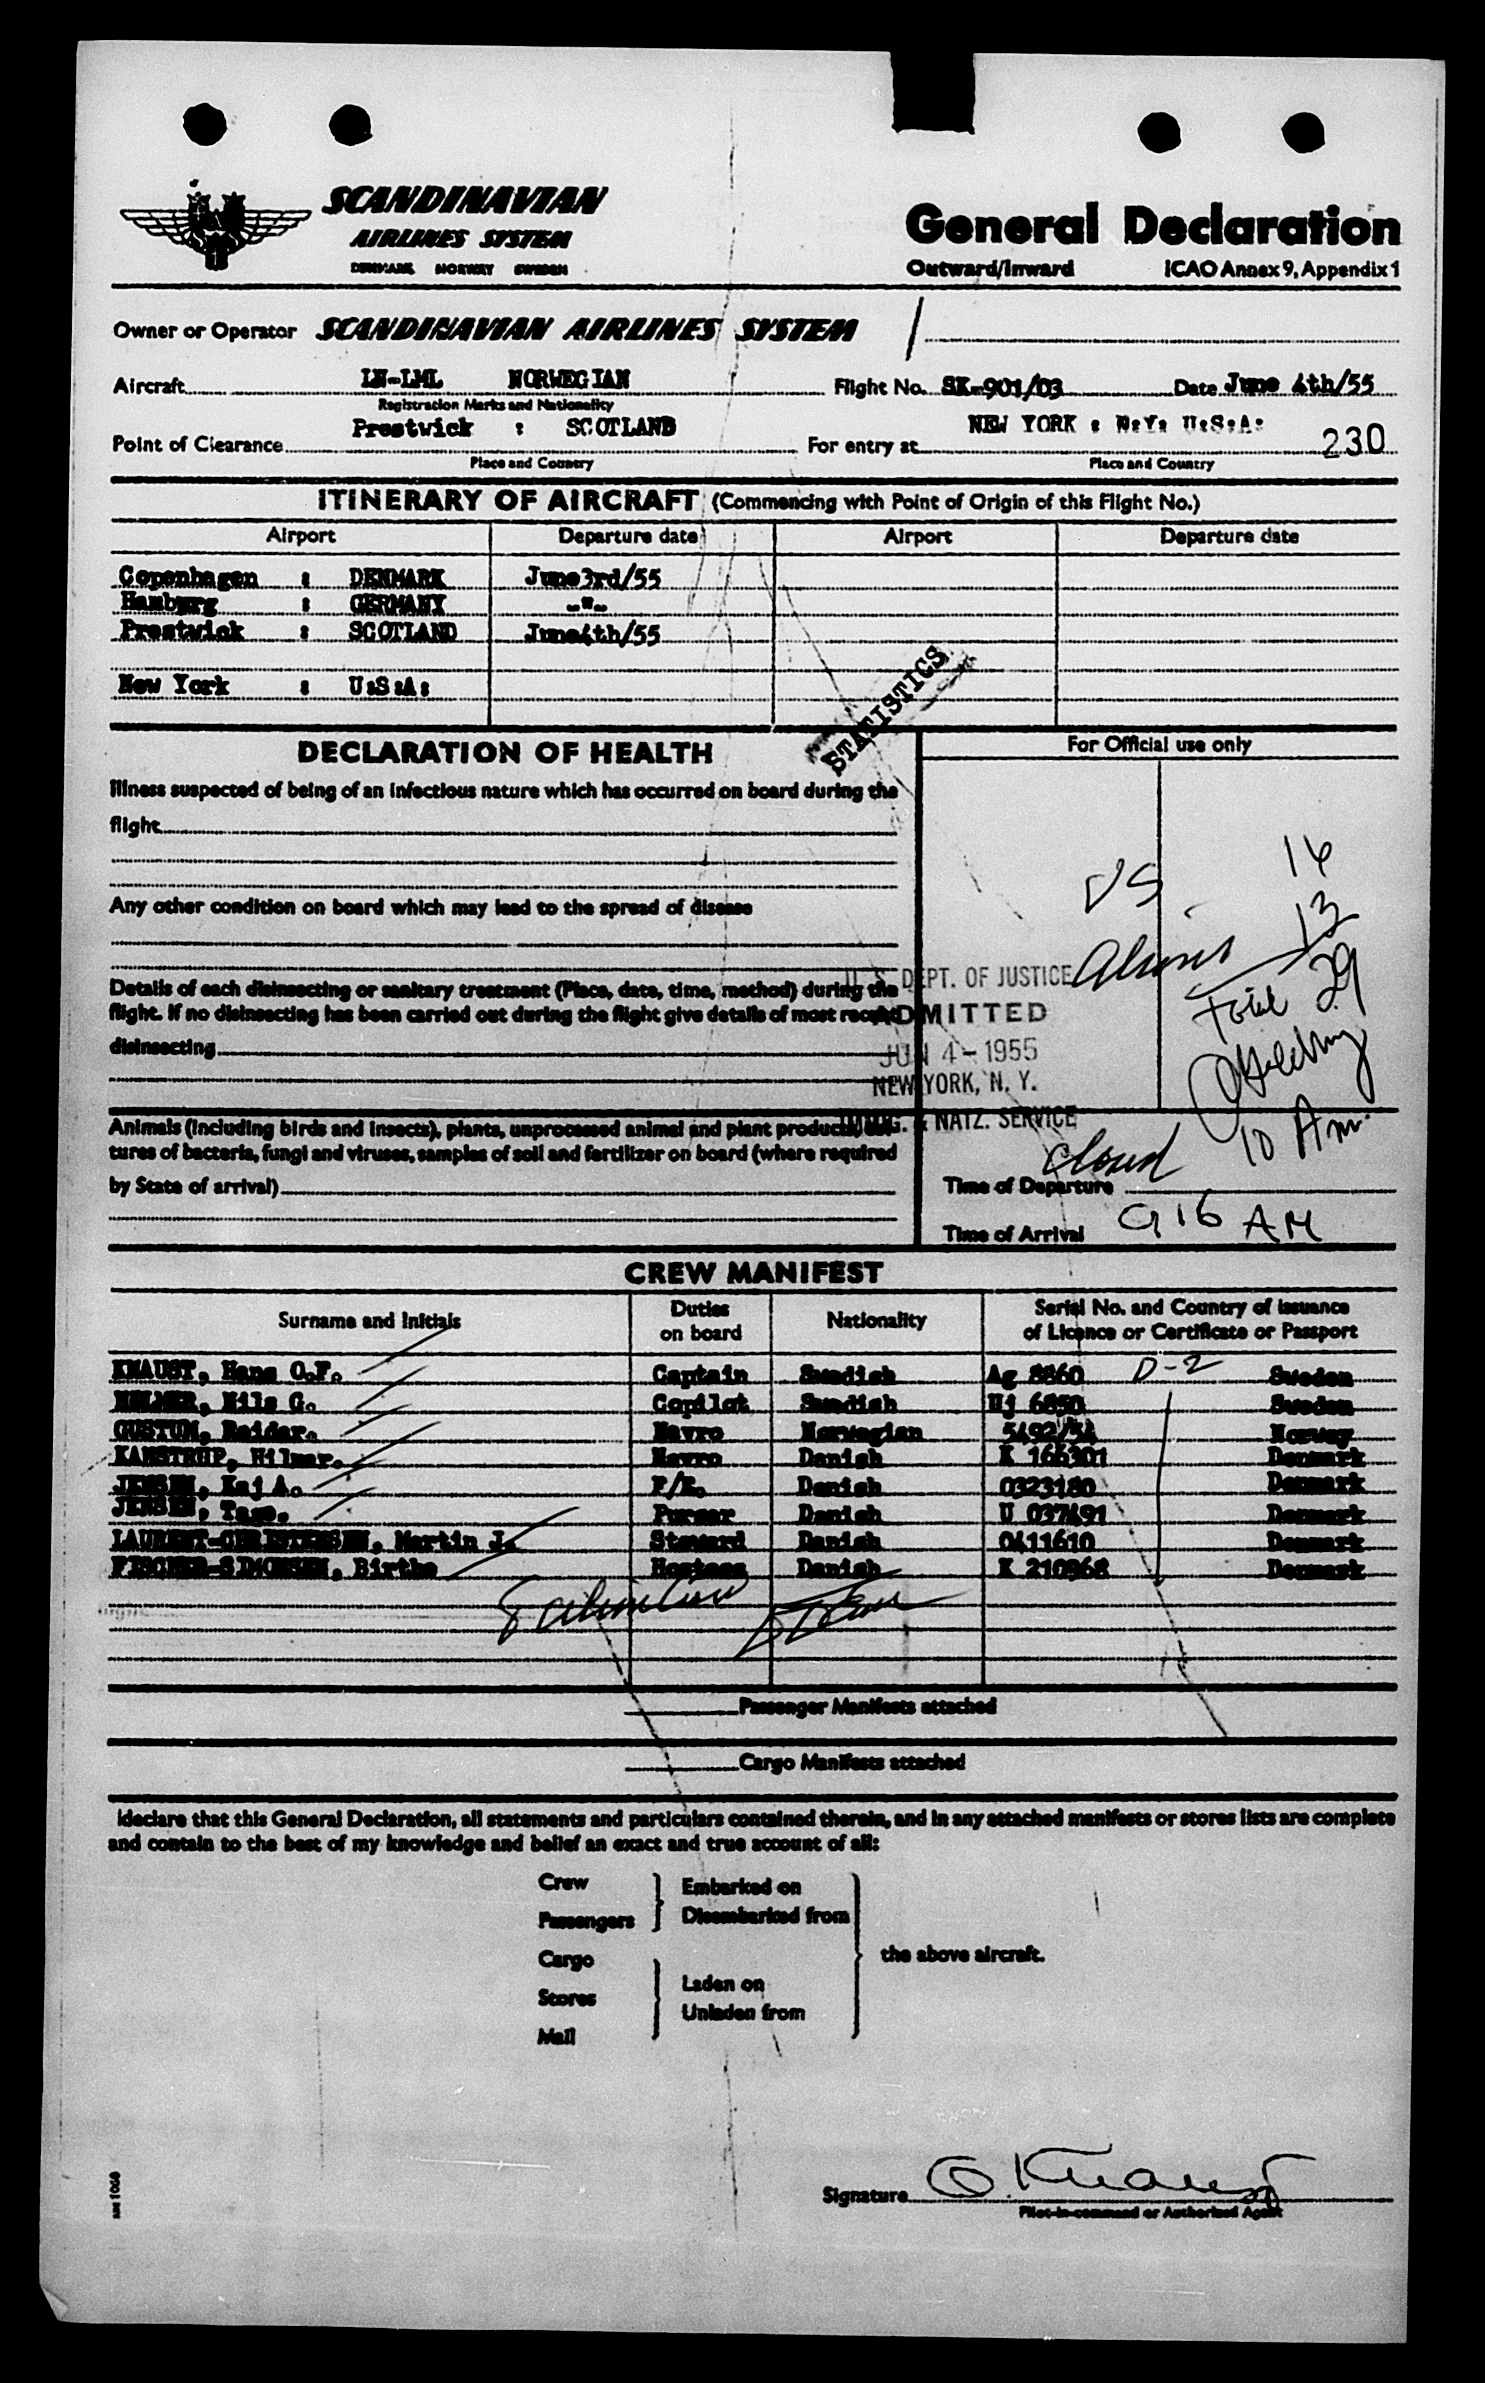 SCANDINAVIAN
AIRLINES SYSTEM
DENMARK NORWAY SWEDEN
General Declaration
Outward/Inward ICAO Annex 9, Appendix 1
Owner or Operator SCANDINAVIAN AIRLINES SYSTEM /
Aircraft LN-LML NORWEGIAN Flight No. SK-901/03 Date June 4th/55
Registration Marks and Nationality
Point of Clearance Prestwick : SCOTLAND For entry at NEW YORK : N:Y: U:S:A: 230
Place and Country Place and Country
ITINERARY OF AIRCRAFT (Commencing with Point of Origin of this Flight No.)
Airport Departure date Airport Departure date
Copenhagen : DENMARK June3rd/55
Hamburg : GERMANY -"-
Prestwick : SCOTLAND June4th/55
New York : U:S:A:
STATISTICS
DECLARATION OF HEALTH
For Official use only
Illness suspected of being of an infectious nature which has occurred on board during the
flight
Any other condition on board which may lead to the spread of disease
Details of each disinsecting or sanitary treatment (Place, date, time, method) during the
flight. If no disinsecting has been carried out during the flight give details of most recent
disinsecting
US 16
Aliens 13
Total 29
10 Am.
U. S. DEPT. OF JUSTICE
ADMITTED
JUN 4 - 1955
NEW YORK, N. Y.
IMMIG. & NATZ. SERVICE
Animals (including birds and insects), plants, unprocessed animal and plant products, cul-
tures of bacteria, fungi and viruses, samples of soil and fertilizer on board (where required
by State of arrival)
Closed
Time of Departure
Time of Arrival 9 16 AM
CREW MANIFEST
Surname and Initials Duties on board Nationality Serial No. and Country of issuance of Licence or Certificate or Passport
KNAUST, Hans O.F. Captain Swedish Ag 8860 D-2 Sweden
Nils G. Copilot Swedish Uj 6850 Sweden
Reidar. Navro Norwegian 5492/54 Norway
KAMSTRUP, Hilmar. Navro Danish K 166301 Denmark
JENSEN, Kaj A. F/E. Danish 0323180 Denmark
JENSEN, Tage. Purser Danish U 037491 Denmark
LAURENT-CHRISTENSEN, Martin J. Steward Danish 0411610 Denmark
FISCHER-SIMONSEN, Birthe Hostess Danish K 210968 Denmark
8 alien Crew
Passenger Manifests attached
Cargo Manifests attached
I declare that this General Declaration, all statements and particulars contained therein, and in any attached manifests or stores lists are complete
and contain to the best of my knowledge and belief an exact and true account of all:
Crew
Passengers
Embarked on
Disembarked from
Cargo
Stores
Mail
Laden on
Unladen from
the above aircraft.
Signature O. Knaust
Pilot-in-command or Authorised Agent